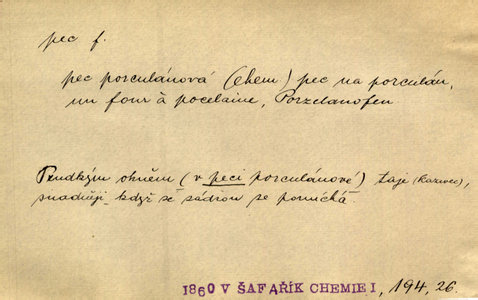 pec f.
pec porculánová (chem) pec na porculán,
un four à pocelaine, Porzelanofen
Prudkým ohněm (v peci porculánové) taje (kazivec),
snadněji když se sádrou se pomíchá.
1860 V ŠAFAŘÍK CHEMIE I, 194, 26.